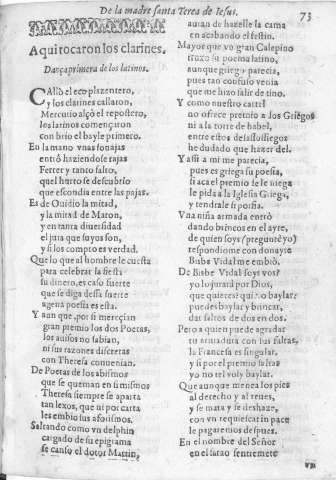 De la madre santa Teresa de Iesus.
73
Aqui tocaron los clarines.
Dança primera de los latinos.
CAllò el eco plazentero,
y los clarines callaron,
Mercurio alçò el repostero,
los latinos començaron
con brio el bayle primero.
En la mano vnas sonajas
entrò haziendose rajas
Ferrer y tanto salto,
quel hurto se descubrio
que escondia entre las pajas.
Es de Ouidio la mitad,
y la mitad de Maron,
y en tanta diuersidad
el jura que suyos son,
y si los compro es verdad.
Que lo que al hombre le cuesta
para celebrar la fiesta
su dinero, es caso fuerte
que se diga dessa suerte
agena poesia es esta.
Y aun que, por si merecian
gran premio los dos Poetas,
los autos no sabian,
ni sus razones discretas
con Theresa conuenian.
De Poetas de los abismos
que se queman en si mismos
Theresa siempre se aparta
tan lexos, que ni por carta
les embio sus aforismos.
Saltando como vn delphin
cargado de su epigrama
se cansò el dotor Martin,
auran de hazelle la cama
en acabando el festin.
Mayor que vo gran Calepino
truxo su poema latino,
aunque griego parecia,
pues tan confuso venia
que me hizo salir de tino.
Y como nuestro cartel
no ofrece premio a los Griegos
ni a la torre de babel,
entre estos desassossiegos
he dudado que hazer del.
Y assi a mi me parecia,
pues es griega su poesia,
si aca el premio se le niega
le pida a la Iglesia Griega,
y tendrale si porfia.
Vna niña armada entrò
dando brincos en el ayre,
de quien soys (preguntè yo)
respondiome con donayre
Bisbe Vidal me embiò.
De Bisbe Vidal soys vos?
yo lo jurarà por Dios,
que quieres? qui? o baylar?
puedes baylar y brincar,
dar saltos de dos en dos.
Pero a quien puede agradar
tu armadura con tus saltos,
la Francesa es singular,
y si por el premio saltas
yo no tel voly baylar.
Que aunque menea los pies
al derecho y al reues,
y se mata y se deshaze,
con vn requiescat in pace
le pagaremos despues.
En el nombre del Señor
en el sarao sentremete
vn